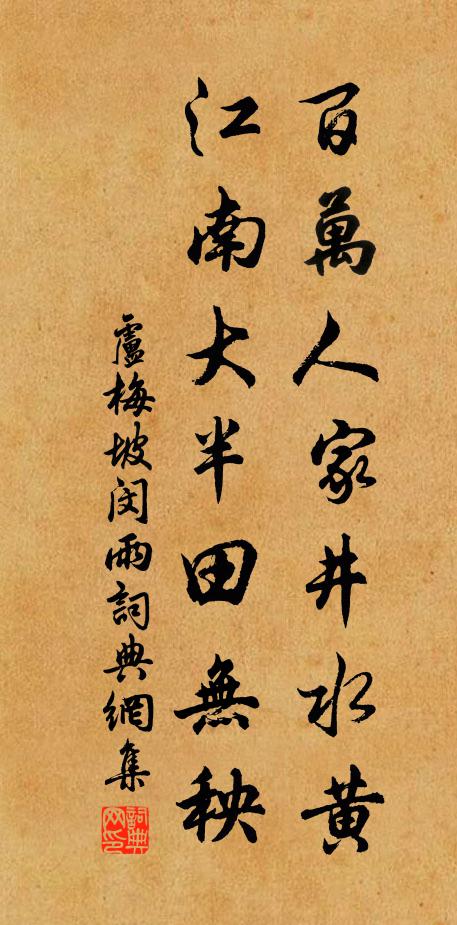 百萬人家井水黄
江南大半田無秧
盧梅坡閔雨詞典網集
詞典网印